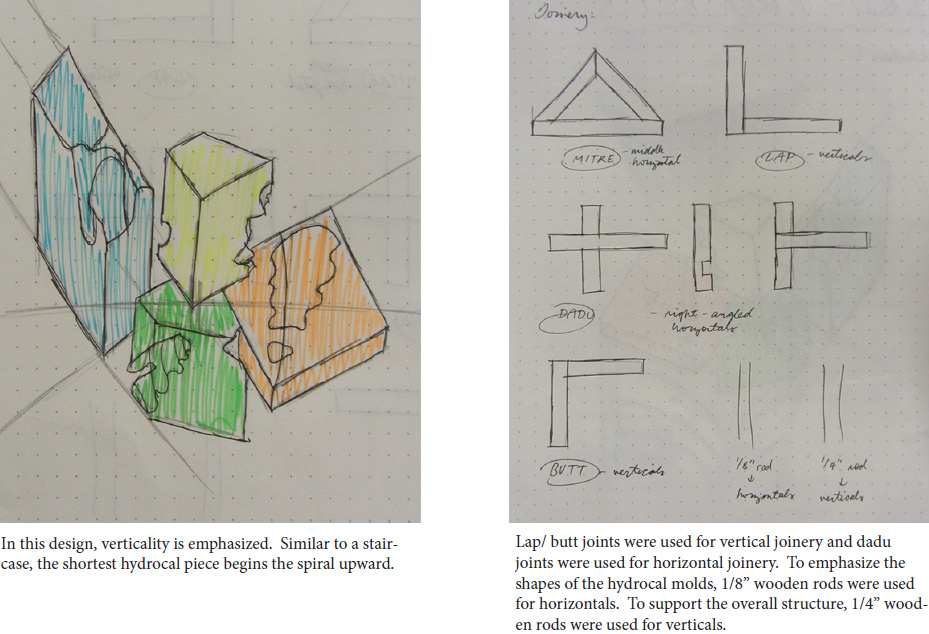 In this design, verticality is emphasized.  Similar to a stair-
case, the shortest hydrocal piece begins the spiral upward.
Joinery:
MITRE - middle
horizontal
LAP - verticals
DADU - right-angled
horizontals
BUTT - verticals
1/8" rod
↓
horizontals
1/4" rod
↓
verticals
Lap/ butt joints were used for vertical joinery and dadu
joints were used for horizontal joinery.  To emphasize the
shapes of the hydrocal molds, 1/8” wooden rods were used
for horizontals.  To support the overall structure, 1/4” wood-
en rods were used for verticals.